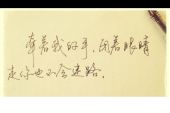 牵着我的手，闭着眼睛
走你也不会迷路。